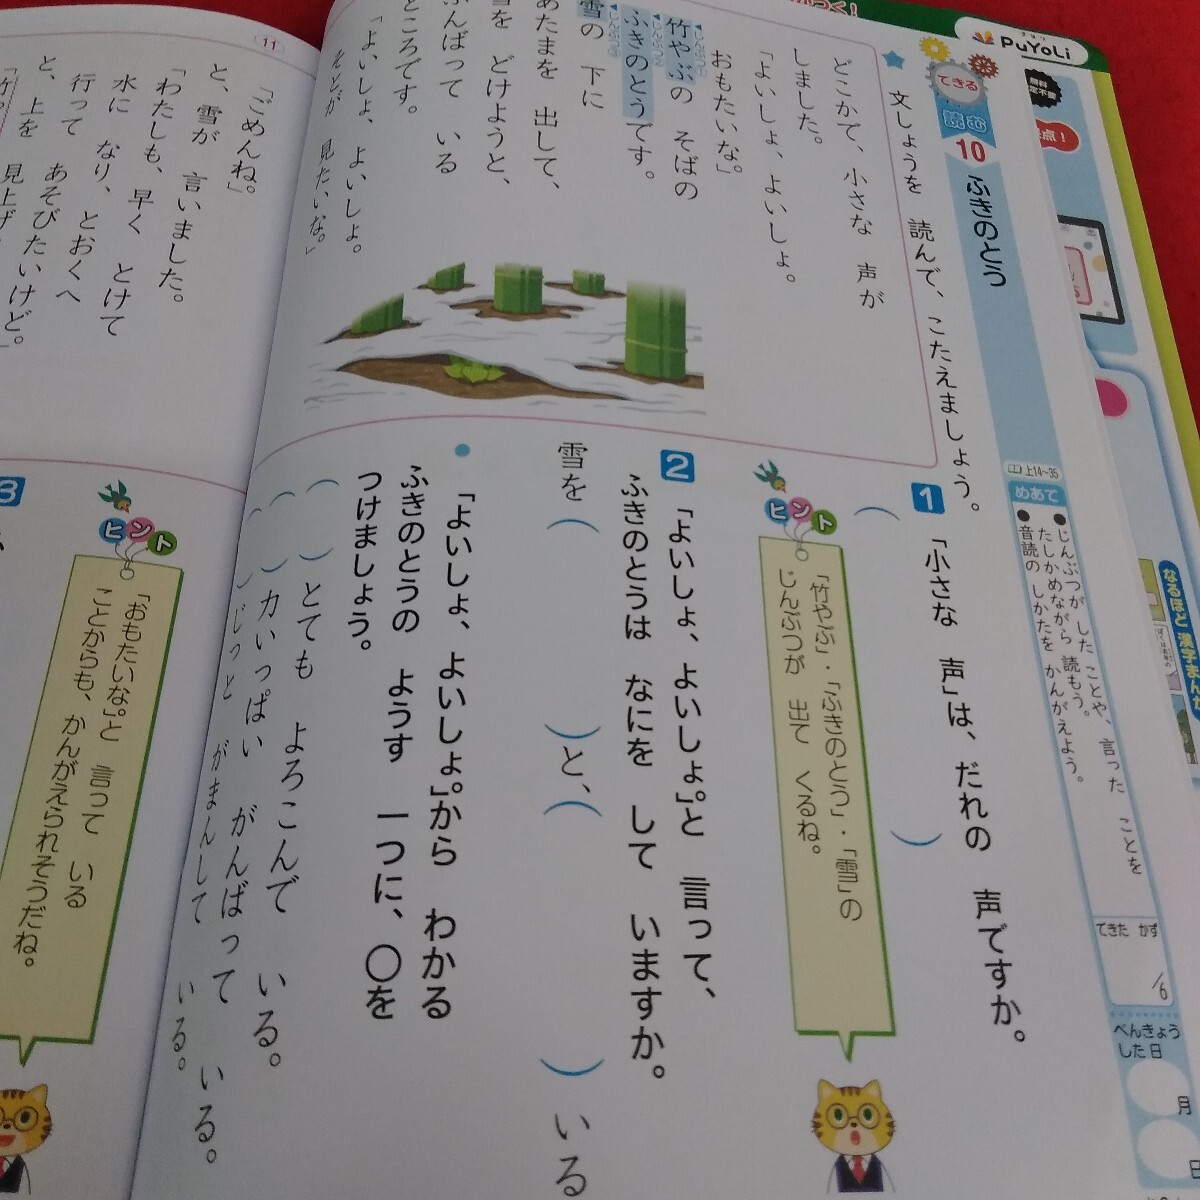 PuYoLi
できる
読む
10
ふきのとう
文しょうを 読んで、こたえましょう。
上14~35
めあて
●じんぶつが した ことや、言った ことを
たしかめながら 読もう。
●音読の しかたを かんがえよう。
できた かず
/6
べんきょう
した日
月
日
なるほど 漢字まんが
どこかで、小さな 声が
しました。
「よいしょ、よいしょ。
おもたいな。」
竹やぶの そばの
ふきのとうです。
雪の 下に
あたまを 出して、
雪を どけようと、
ふんばって いる
ところです。
「よいしょ、よいしょ。
そとが 見たいな。」
1 「小さな 声」は、だれの 声ですか。
( )
ヒント
「竹やぶ」・「ふきのとう」・「雪」の
じんぶつが 出て くるね。
2 「よいしょ、よいしょ。」と 言って、
ふきのとうは なにを して いますか。
雪を( )と、( )いる
●「よいしょ、よいしょ。」から わかる
ふきのとうの ようす 一つに、○を
つけましょう。
( )とても よろこんで いる。
( )力いっぱい がんばって いる。
( )じっと がまんして いる。
11
「ごめんね。」
と、雪が 言いました。
「わたしも、早く とけて
水に なり、とおくへ
行って あそびたいけど。」
と、上を 見上げ
「竹
3
ヒント
「おもたいな。」と 言って いる
ことからも、かんがえられそうだね。